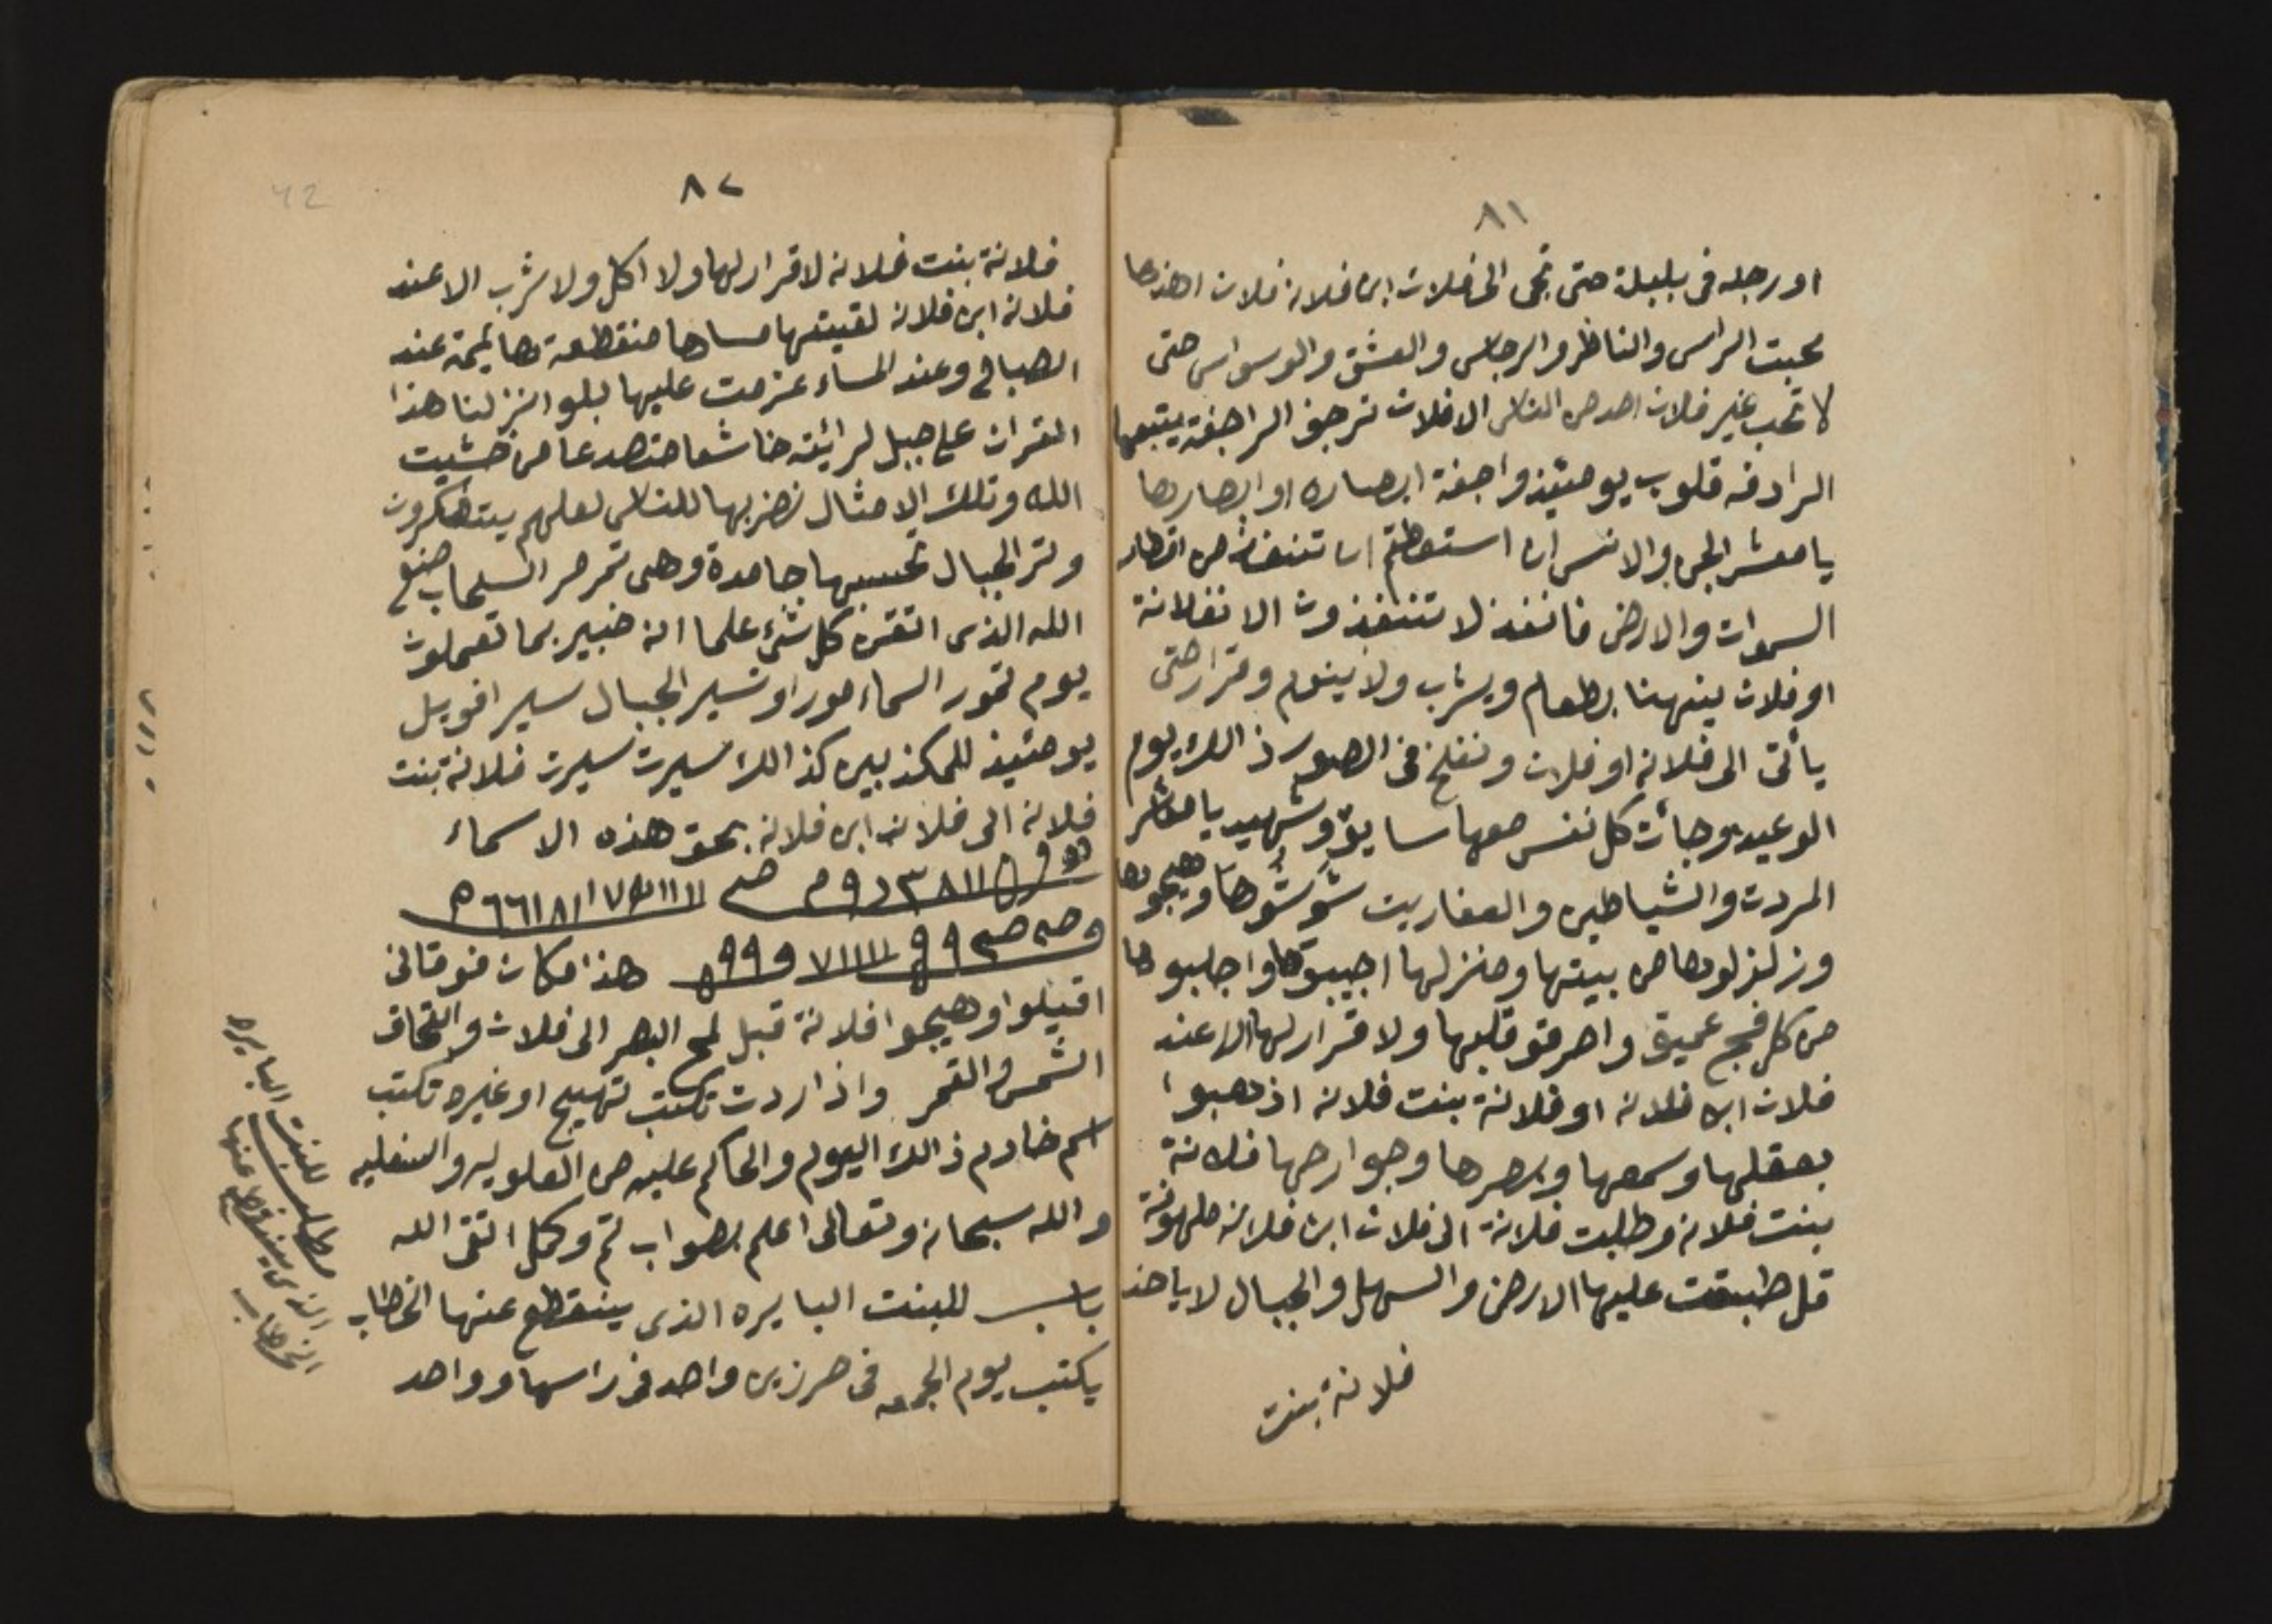 ٨١
او رجله فى بلبلة حتى تجى الى فلان ابن فلانه فلان اخذها
بحبت الراس والناظر والرجاس والعشق والوسواس حتى
لا تحب غير فلان احد من الناس الا فلان ترجف الراجفة يتبعها
الرادفه قلوب يومئيذ واجفة ابصاره او ابصارها
يا معشر الجن والانس ان استعطتم ان تنفذ من اقطار
السموات والارض فانفذ لا تنفذون الا نفلانة
او فلان ينهنا بطعام ويشرب ولا ينوم وقرار حتى
يأتى الى فلانه او فلان ونفخ فى الصور ذالك يوم
الوعيد وجائت كل نفس معها سايق وشهيد يا معشر
المردت والشياطين والعفاريت شوشوها وهيجوها
وزلزلوها من بيتها ومنزلها اجيبوها واجلبوها
من كل فج عميق واحرقو قلبها ولا قرار لها الا عند
فلان ابن فلانه او فلانة بنت فلانه اذهبوا
بعقلها وسمعها وبصرها وجوارحها فلانة
بنت فلانه وطلبت فلانة الى فلان ابن فلانه ملهوفة
قل طبقت عليها الارض والسهل والجبال لا ياخذ
فلانة بنت
٨٢
42
فلانة بنت فلانه لا قرار لها ولا اكل ولا شرب الا عند
فلانه ابن فلانه لقيتها مساها منقطعة هايمة عند
الصباح وعند المساء عزمت عليها بلو انزلنا هذا
القران على جبل لرائيته خاشعا متصدعا من خشيت
الله وتلك الامثال نضربها للناس لعلهم يتفكرون
وتر الجبال تحسبها جامدة وهى تمر مر السحاب صنع
الله الذى اتقن كل شئ علما انه خبير بما تعملون
يوم تمور السماء مورا وتسير الجبال سيرا فويل
يومئيذ للمكذبين كذالك سيرت سيرت فلانة بنت
فلانه الى فلان ابن فلانه بحق هذه الاسماء
هذا مكان فوقانى
اقبلوا وهيجوا فلانة قبل لمح البصر الى فلان والتحاق
الشمس والقمر واذا اردت تكتب تهييج او غيره تكتب
اسم خادم ذالك اليوم والحاكم عليه من العلويه والسفليه
والله سبحانه وتعالى اعلم بصواب تم وكمل اتقى الله
باب للبنت البايره الذى ينقطع عنها الخطاب
يكتب يوم الجمعه فى حرزين واحد فى راسها وواحد
مطلب للبنت البايره
الذى ينقطع عنها
الخطاب